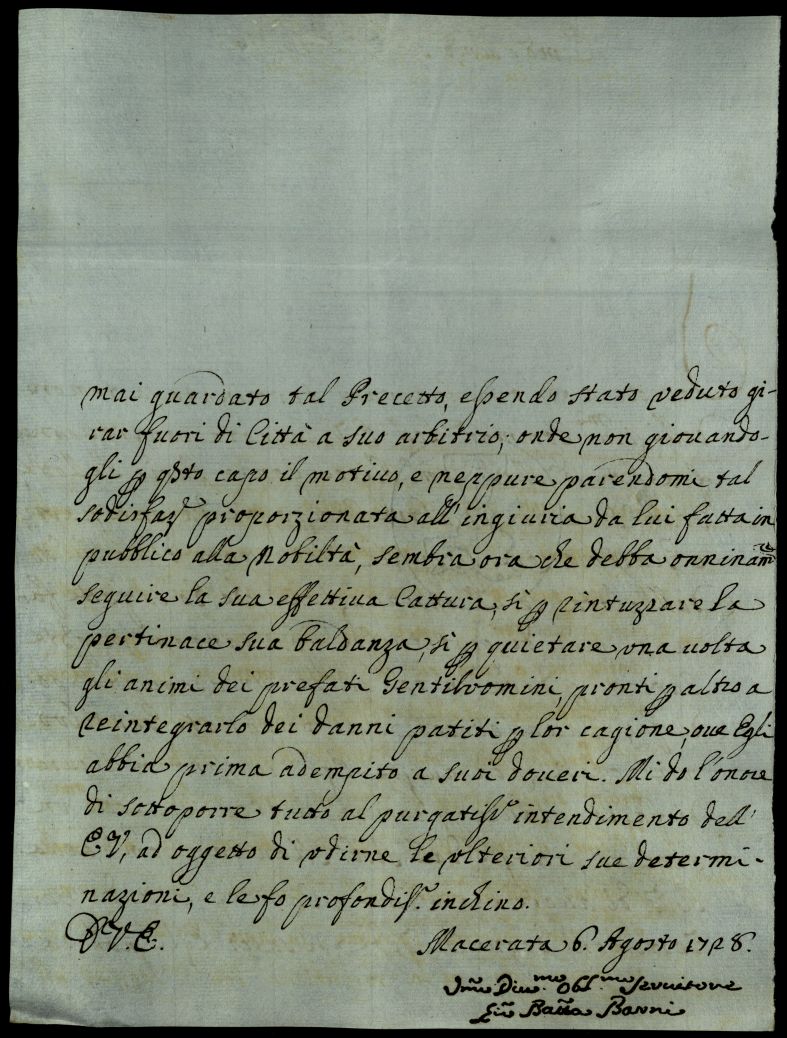 mai guardato tal Precetto, essendo stato veduto gi-
rar fuori di Città a suo arbitrio; onde non giouando-
gli p qsto capo il motiuo, e neppure parendomi tal
sodisfaz.e proporzionata all' ingiuria da lui fatta in
pubblico alla Nobiltà, sembra ora che debba onninam.te
seguire la sua effettiua Cattura, sì p rintuzzare la
pertinace sua baldanza, sì p quietare una uolta
gli animi dei prefati Gentilvomini, pronti p altro a
reintegrarlo dei danni patiti p lor cagione, oue Egli
abbia prima adempito a suoi doueri. Mi do l'onore
di sottoporre tutto al purgatiss.o intendimento dell'
E V, ad oggetto di vdirne le vlteriori sue determi-
nazioni, e le fo profondiss.o inchino.
D V. E.
Macerata 6. Agosto 1728.
Vmo Diu.mo Obl.mo Seruitore
Gio Batta Barni